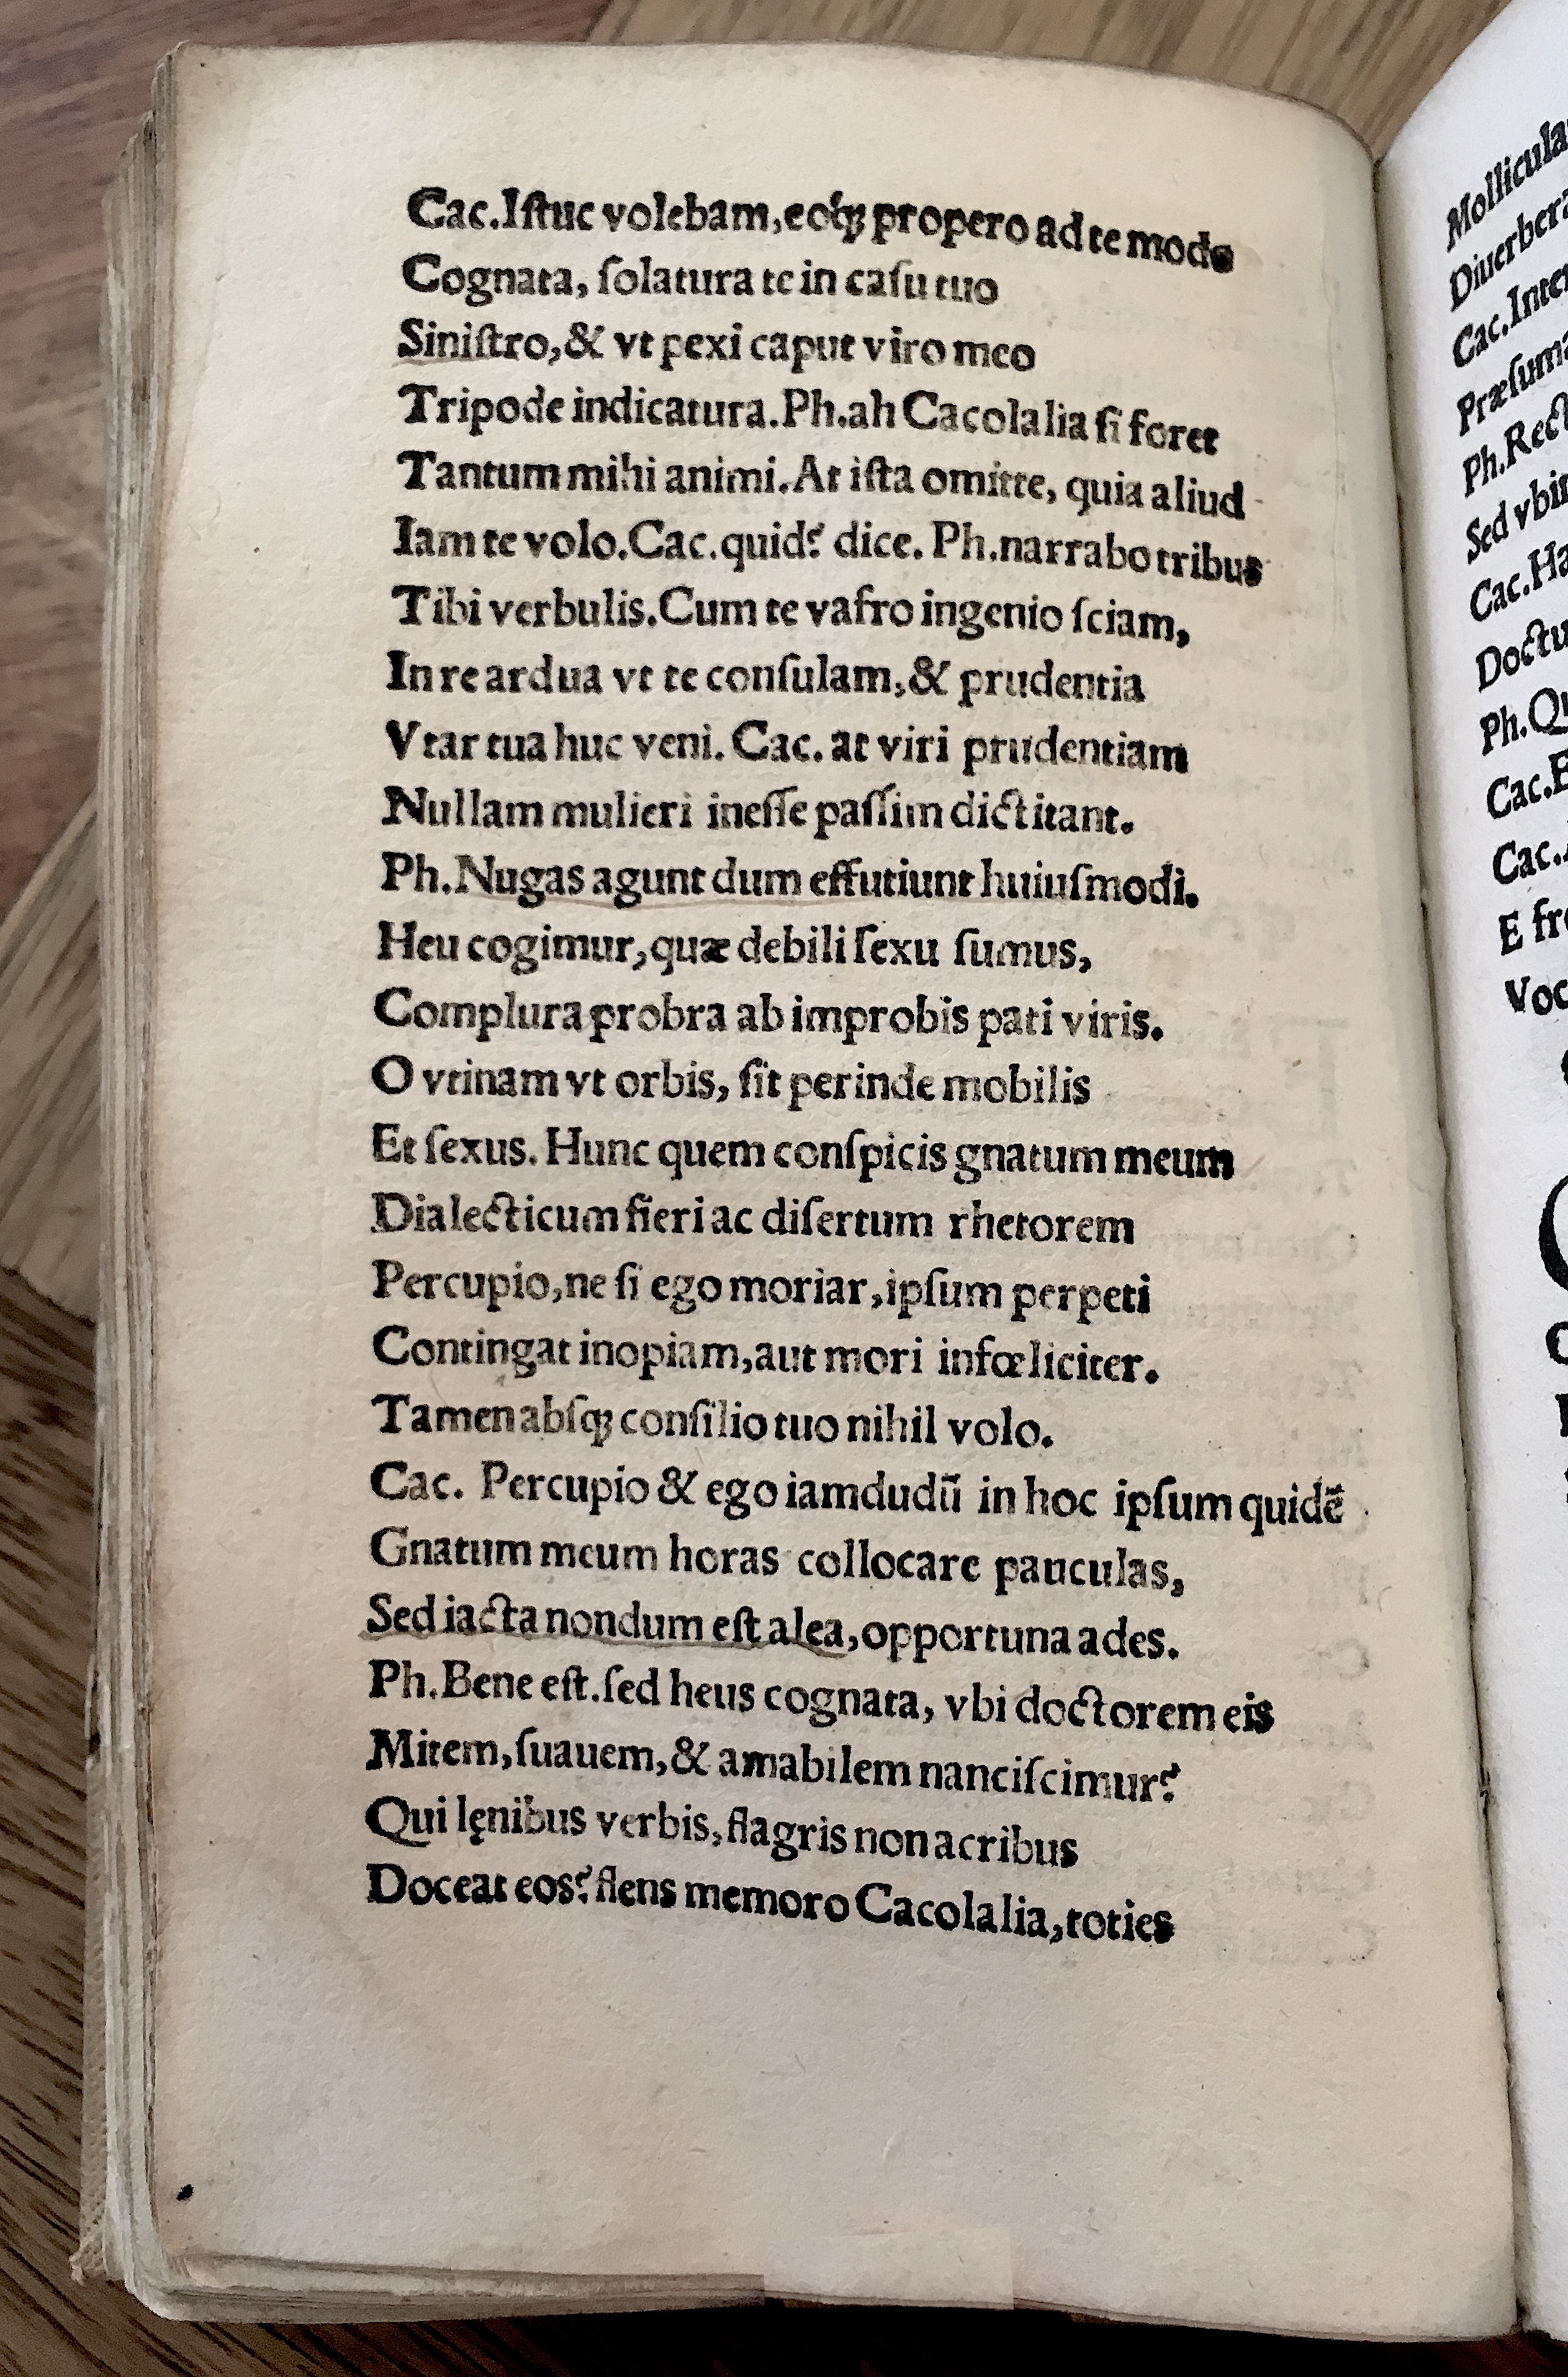 Cac.Iſtuc volebam,eoq́ꝫ propero ad te modo
Cognata, ſolatura te in caſu tuo
Siniſtro,& vt pexi caput viro meo
Tripode indicatura.Ph.ah Cacolalia ſi foret
Tantum mihi animi.At iſta omitte, quia aliud
Iam te volo.Cac.quid? dice. Ph.narrabo tribus
Tibi verbulis.Cum te vafro ingenio ſciam,
In re ardua vt te conſulam,& prudentia
Vtar tua huc veni. Cac. at viri prudentiam
Nullam mulieri ineſſe paſſim dictitant.
Ph.Nugas agunt dum effutiunt huiuſmodi.
Heu cogimur,quæ debili ſexu ſumus,
Complura probra ab improbis pati viris.
O vtinam vt orbis, ſit perinde mobilis
Et ſexus. Hunc quem conſpicis gnatum meum
Dialecticum fieri ac diſertum rhetorem
Percupio,ne ſi ego moriar,ipſum perpeti
Contingat inopiam,aut mori infœliciter.
Tamen abſqꝫ conſilio tuo nihil volo.
Cac. Percupio & ego iamdudū in hoc ipſum quidē
Gnatum meum horas collocare pauculas,
Sed iacta nondum eſt alea,opportuna ades.
Ph.Bene eſt.ſed heus cognata, vbi doctorem eis
Mitem,ſuauem,& amabilem nanciſcimur?
Qui lęnibus verbis,flagris non acribus
Doceat eos? flens memoro Cacolalia,toties
Cac.
Ph.
Sed
Cac.
Ph.
Cac.
Cac.